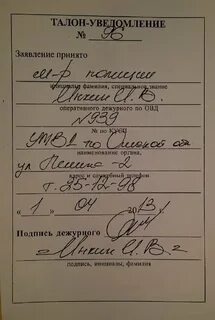 ТАЛОН-УВЕДОМЛЕНИЕ
№ 96
Заявление принято
м-р полиции
инициалы фамилия, специальное звание
Инкин И. В.
оперативного дежурного по ОВД
№939
№ по КУСП
УМВД по Омской обл
наименование органа,
ул Ленина-2
адрес и служебный телефон
т. 25-12-98
« 1 » 04 2013 г.
Подпись дежурного
Инкин И. В.
подпись, инициалы, фамилия